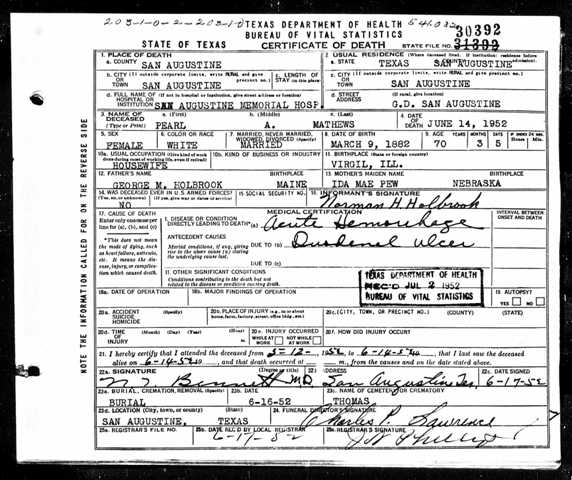 203-1-0-2-203-1-0 TEXAS DEPARTMENT OF HEALTH 30392
BUREAU OF VITAL STATISTICS
STATE OF TEXAS CERTIFICATE OF DEATH STATE FILE NO. 31392
1. PLACE OF DEATH 2. USUAL RESIDENCE (Where deceased lived. If institution: residence before admission).
a. COUNTY SAN AUGUSTINE a. STATE TEXAS b. COUNTY SAN AUGUSTINE
b. CITY (If outside corporate limits, write RURAL and give precinct no.) OR TOWN SAN AUGUSTINE c. LENGTH OF STAY (in this place) c. CITY (If outside corporate limits, write RURAL and give precinct no.) OR TOWN SAN AUGUSTINE
d. FULL NAME OF (If not in hospital or institution, give street address or location) HOSPITAL OR INSTITUTION SAN AUGUSTINE MEMORIAL HOSP. d. STREET ADDRESS (If rural, give location) G.D. SAN AUGUSTINE
3. NAME OF DECEASED (Type or Print) a. (First) PEARL b. (Middle) A. c. (Last) MATHEWS 4. DATE OF DEATH JUNE 14, 1952
5. SEX FEMALE 6. COLOR OR RACE WHITE 7. MARRIED, NEVER MARRIED, WIDOWED, DIVORCED (Specify) MARRIED 8. DATE OF BIRTH MARCH 9, 1882 9. AGE YEARS 70 MONTHS 3 DAYS 5
10a. USUAL OCCUPATION (Give kind of work done during most of working life, even if retired) HOUSEWIFE 10b. KIND OF BUSINESS OR INDUSTRY 11. BIRTHPLACE (State or foreign country) VIRGIL, ILL.
12. FATHER'S NAME GEORGE M. HOLBROOK MAINE 13. MOTHER'S MAIDEN NAME IDA MAE PEW NEBRASKA
14. WAS DECEASED EVER IN U.S. ARMED FORCES? (Yes, no, or unknown) (If yes, give war or dates of service) NO 15. SOCIAL SECURITY NO. 16. INFORMANT'S SIGNATURE Norman H. Holbrook
17. CAUSE OF DEATH MEDICAL CERTIFICATION INTERVAL BETWEEN ONSET AND DEATH
Enter only one cause per line for (a), (b), and (c) I. DISEASE OR CONDITION DIRECTLY LEADING TO DEATH* (a) Acute Hemorrhage
*This does not mean the mode of dying, such as heart failure, asthenia, etc. It means the disease, injury, or complication which caused death. ANTECEDENT CAUSES Morbid conditions, if any, giving rise to the above cause (a) stating the underlying cause last. DUE TO (b) Duodenal Ulcer
DUE TO (c)
II. OTHER SIGNIFICANT CONDITIONS
Conditions contributing to the death but not related to the disease or condition causing death.
TEXAS DEPARTMENT OF HEALTH
REC'D JUL 2 1952
BUREAU OF VITAL STATISTICS
18a. DATE OF OPERATION 18b. MAJOR FINDINGS OF OPERATION 19. AUTOPSY? YES NO
20a. ACCIDENT SUICIDE HOMICIDE (Specify) 20b. PLACE OF INJURY (e.g., in or about home, farm, factory, street, office bldg., etc.) 20c. (CITY, TOWN, OR PRECINCT NO.) (COUNTY) (STATE)
20d. TIME OF INJURY (Month) (Day) (Year) (Hour) 20e. INJURY OCCURRED WHILE AT WORK NOT WHILE AT WORK 20f. HOW DID INJURY OCCUR?
21. I hereby certify that I attended the deceased from 5-12-, 1952, to 6-14-52, that I last saw the deceased
alive on 6-14-52, and that death occurred at m., from the causes and on the date stated above.
22a. SIGNATURE Bennett MD 22b. ADDRESS San Augustine Tex. 22c. DATE SIGNED 6-17-52
23a. BURIAL, CREMATION, REMOVAL (Specify) BURIAL 23b. DATE 6-16-52 23c. NAME OF CEMETERY OR CREMATORY THOMAS
23d. LOCATION (City, town, or county) (State) SAN AUGUSTINE, TEXAS 24. FUNERAL DIRECTOR'S SIGNATURE Charles P. Lawrence
25a. REGISTRAR'S FILE NO. 25b. DATE REC'D BY LOCAL REGISTRAR 6-17-52 25c. REGISTRAR'S SIGNATURE
NOTE THE INFORMATION CALLED FOR ON THE REVERSE SIDE